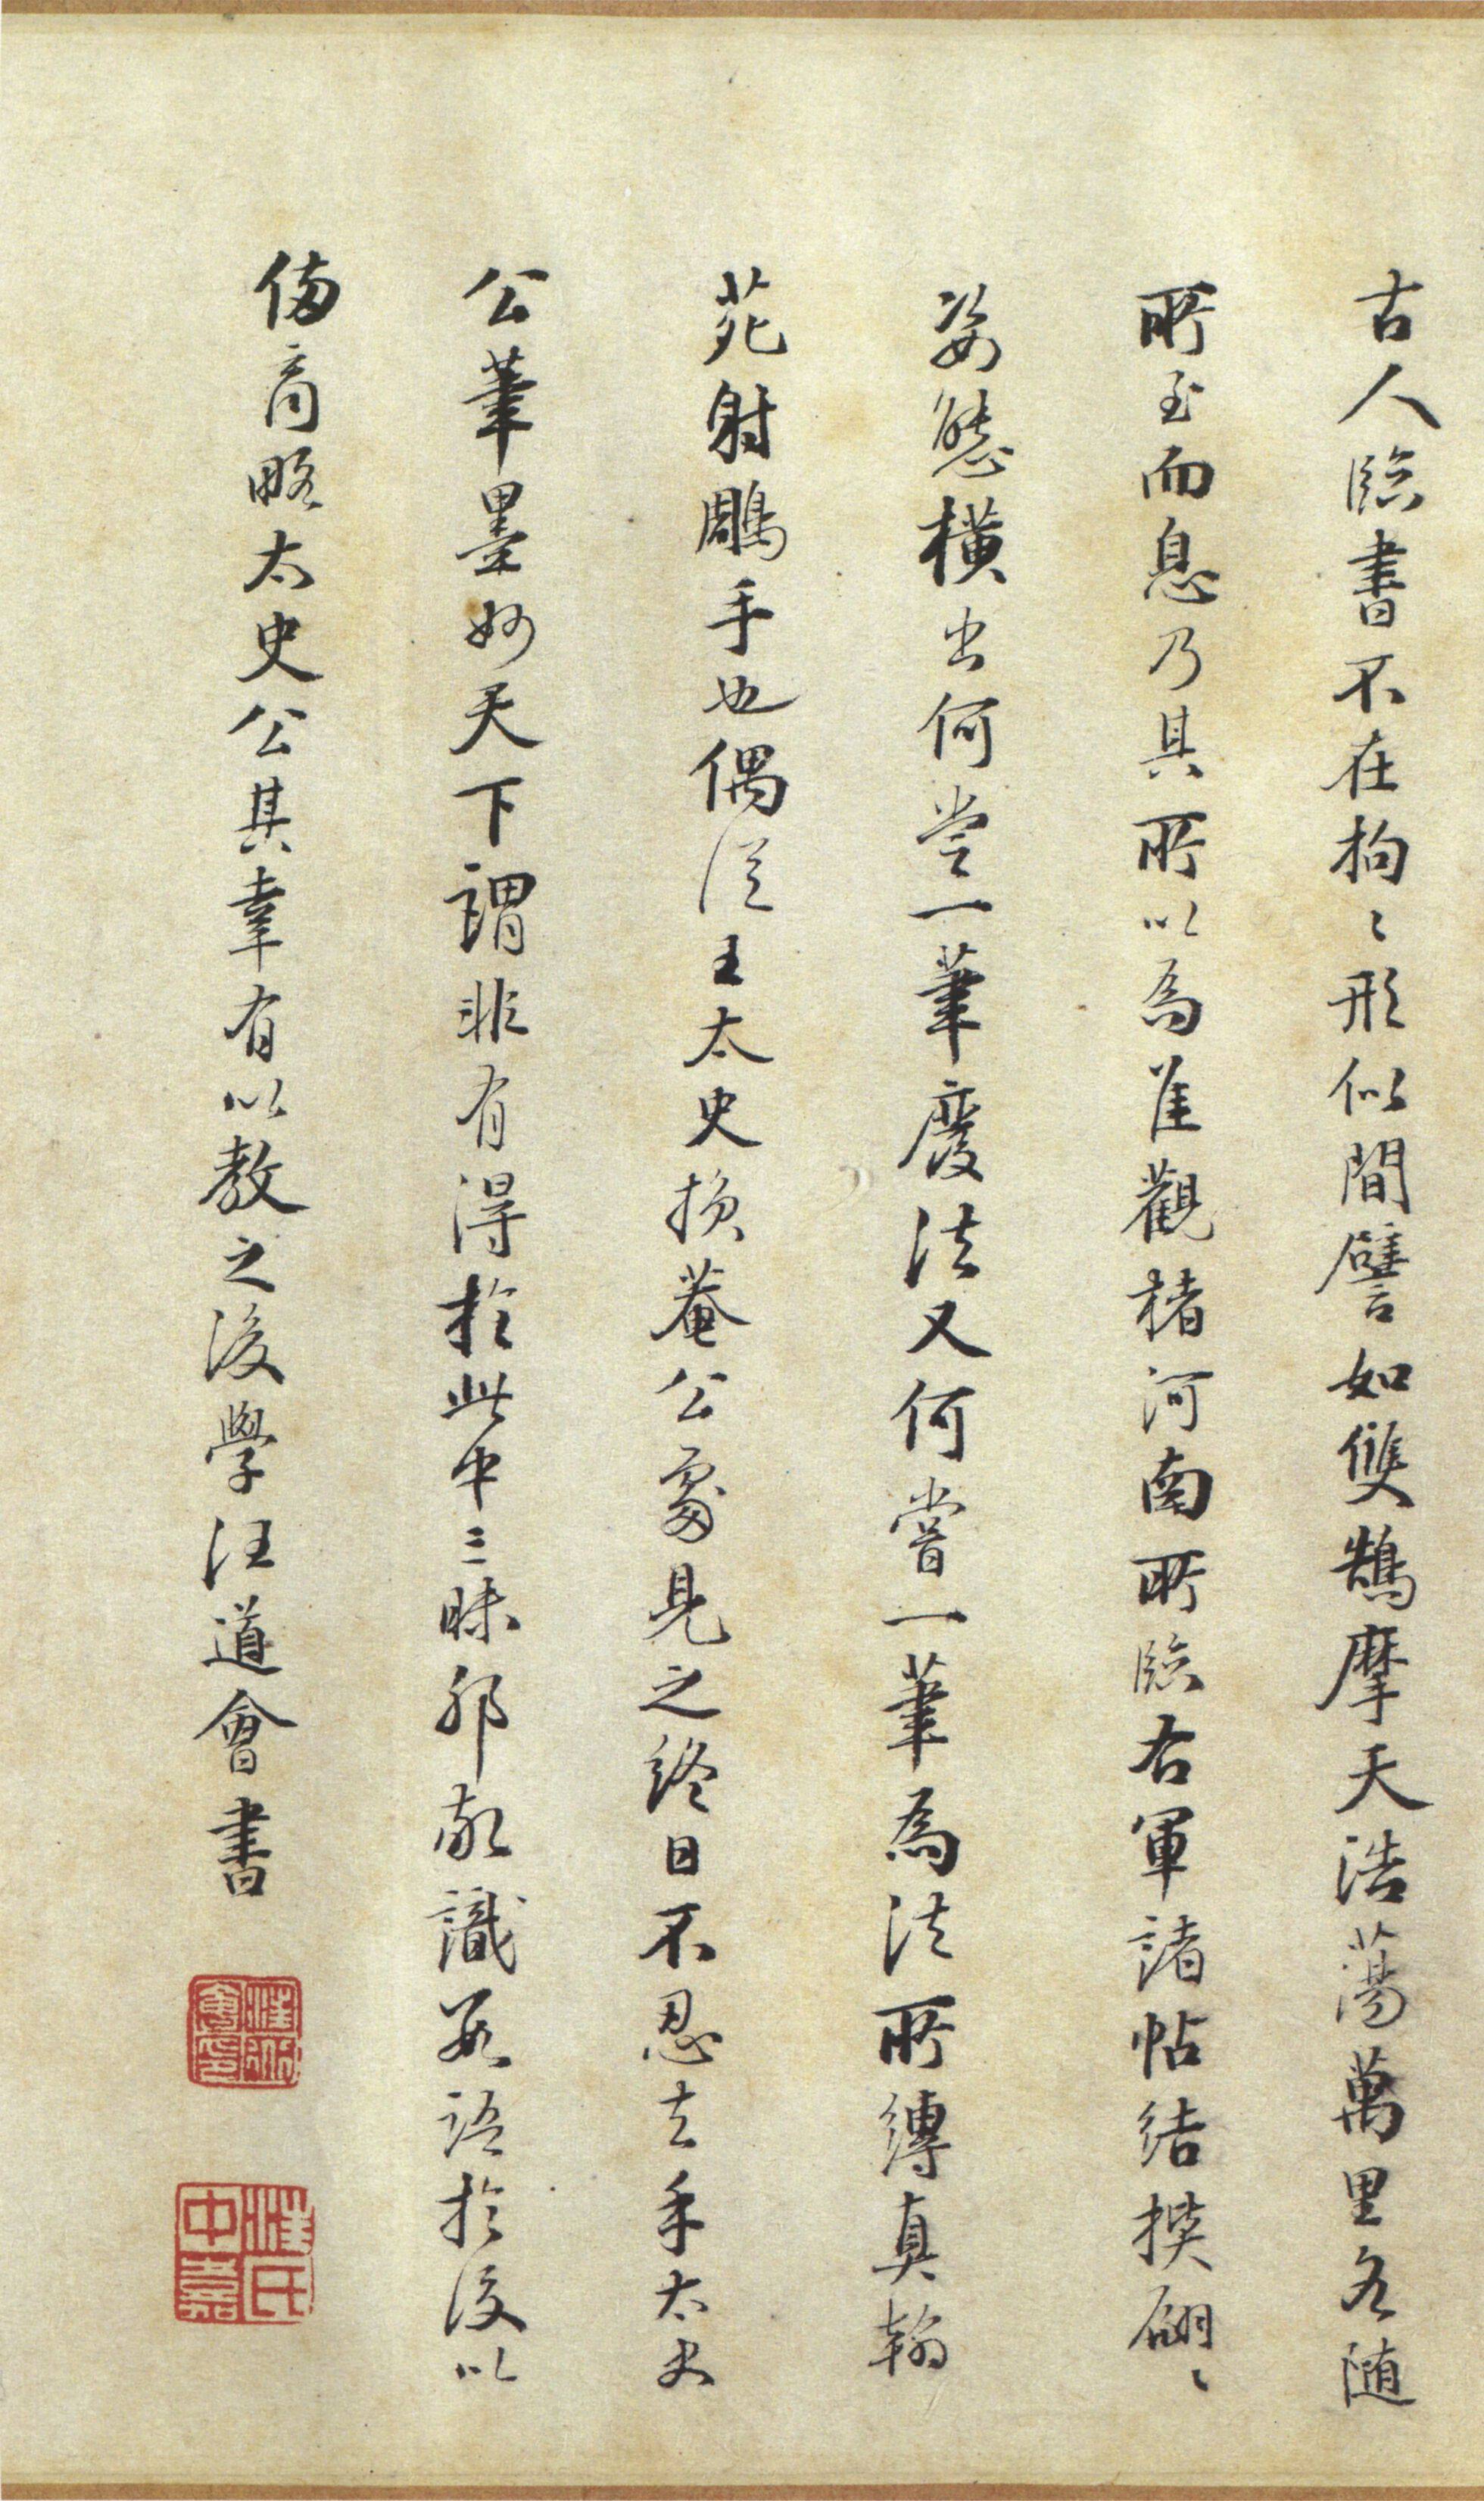 古人臨書不在拘〻形似間譬如雙鵠摩天浩蕩萬里各隨
所至而息乃其所以為佳觀楮河南所臨右軍諸帖結撰翩〻
姿態橫出何嘗一筆廢法又何嘗一筆為法所縛真翰
苑射鵰手也偶從王太史損菴公處見之終日不忍去手太史
公筆墨妙天下謂非有得於此中三昧邪敢識數語於後以
俻商略太史公其幸有以教之後學汪道會書
汪道會印
汪氏中嘉